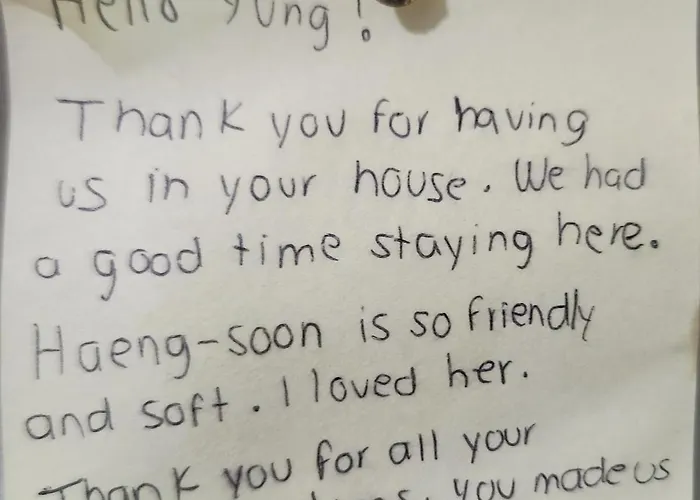 Hello Yung!
Thank you for having
us in your house. We had
a good time staying here.
Haeng-soon is so friendly
and soft. I loved her.
Thank you for all your
you made us